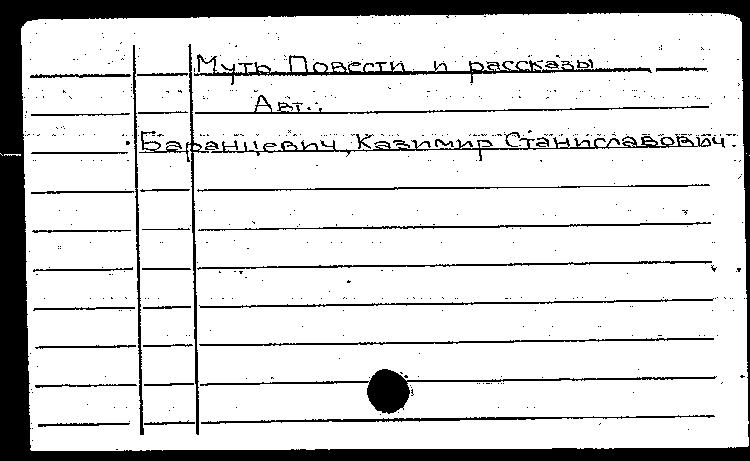 Муть Повести и рассказы
Авт.:
Баранцевич, Казимир Станиславович.